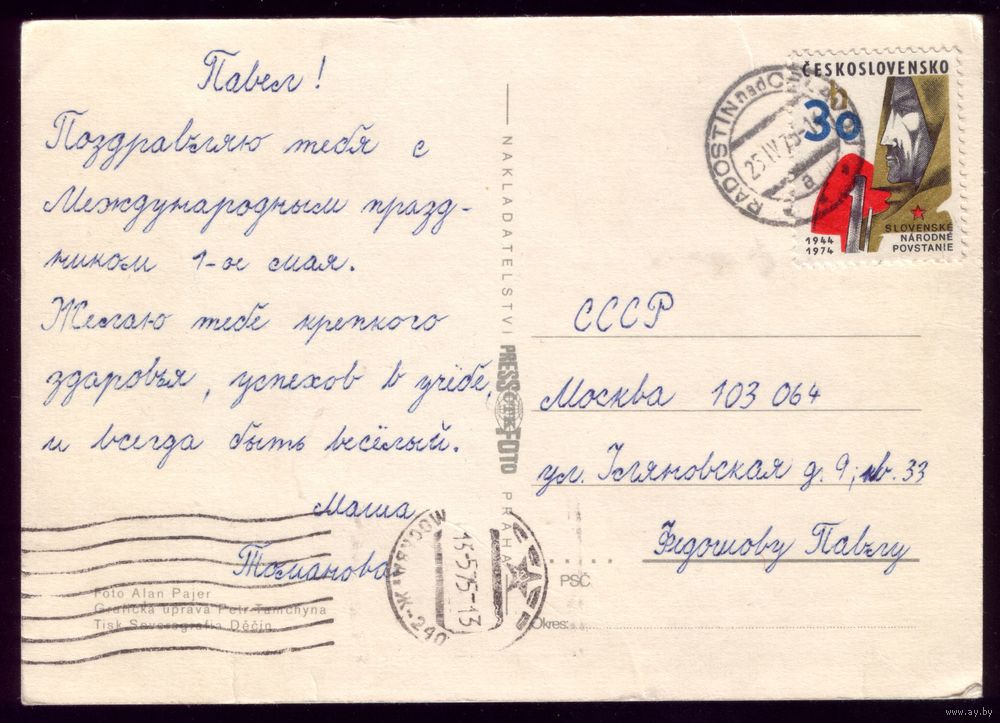 Павел!
Поздравляю тебя с
Международным празд-
ником 1-ое мая.
Желаю тебе крепкого
здоровья, успехов в учёбе,
и всегда быть весёлый.
Маша
Томанова
Foto Alan Pajer
Grafická úprava Petr Tamchyna
Tisk Severografia Děčín
NAKLADATELSTVÍ PRESSFOTO PRAHA
RADOSTÍN nad OSL.
25 IV 75
a
ČESKOSLOVENSKO
30 h
1944
1974
SLOVENSKÉ
NÁRODNÉ
POVSTANIE
СССР
Москва 103 064
ул. Уляновская д. 9, кв. 33
Федошову Павлу
PSČ
Okres:
МОСКВА Ж-240
15-5 75-13
www.ay.by